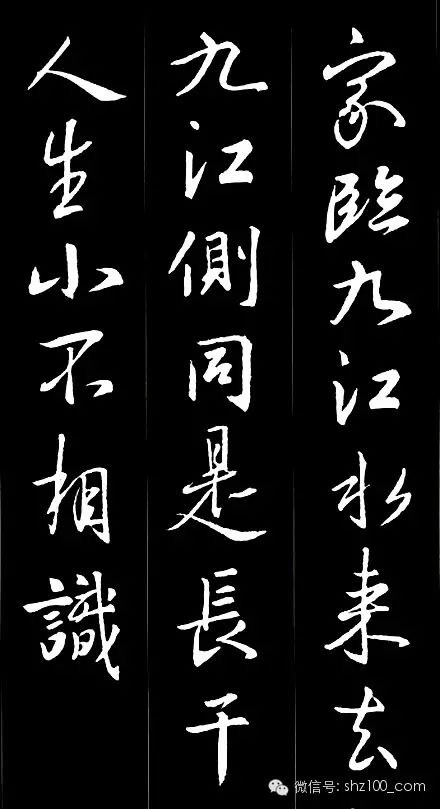 家臨九江水来去
九江側同是長干
人生小不相識
微信号: shz100_com